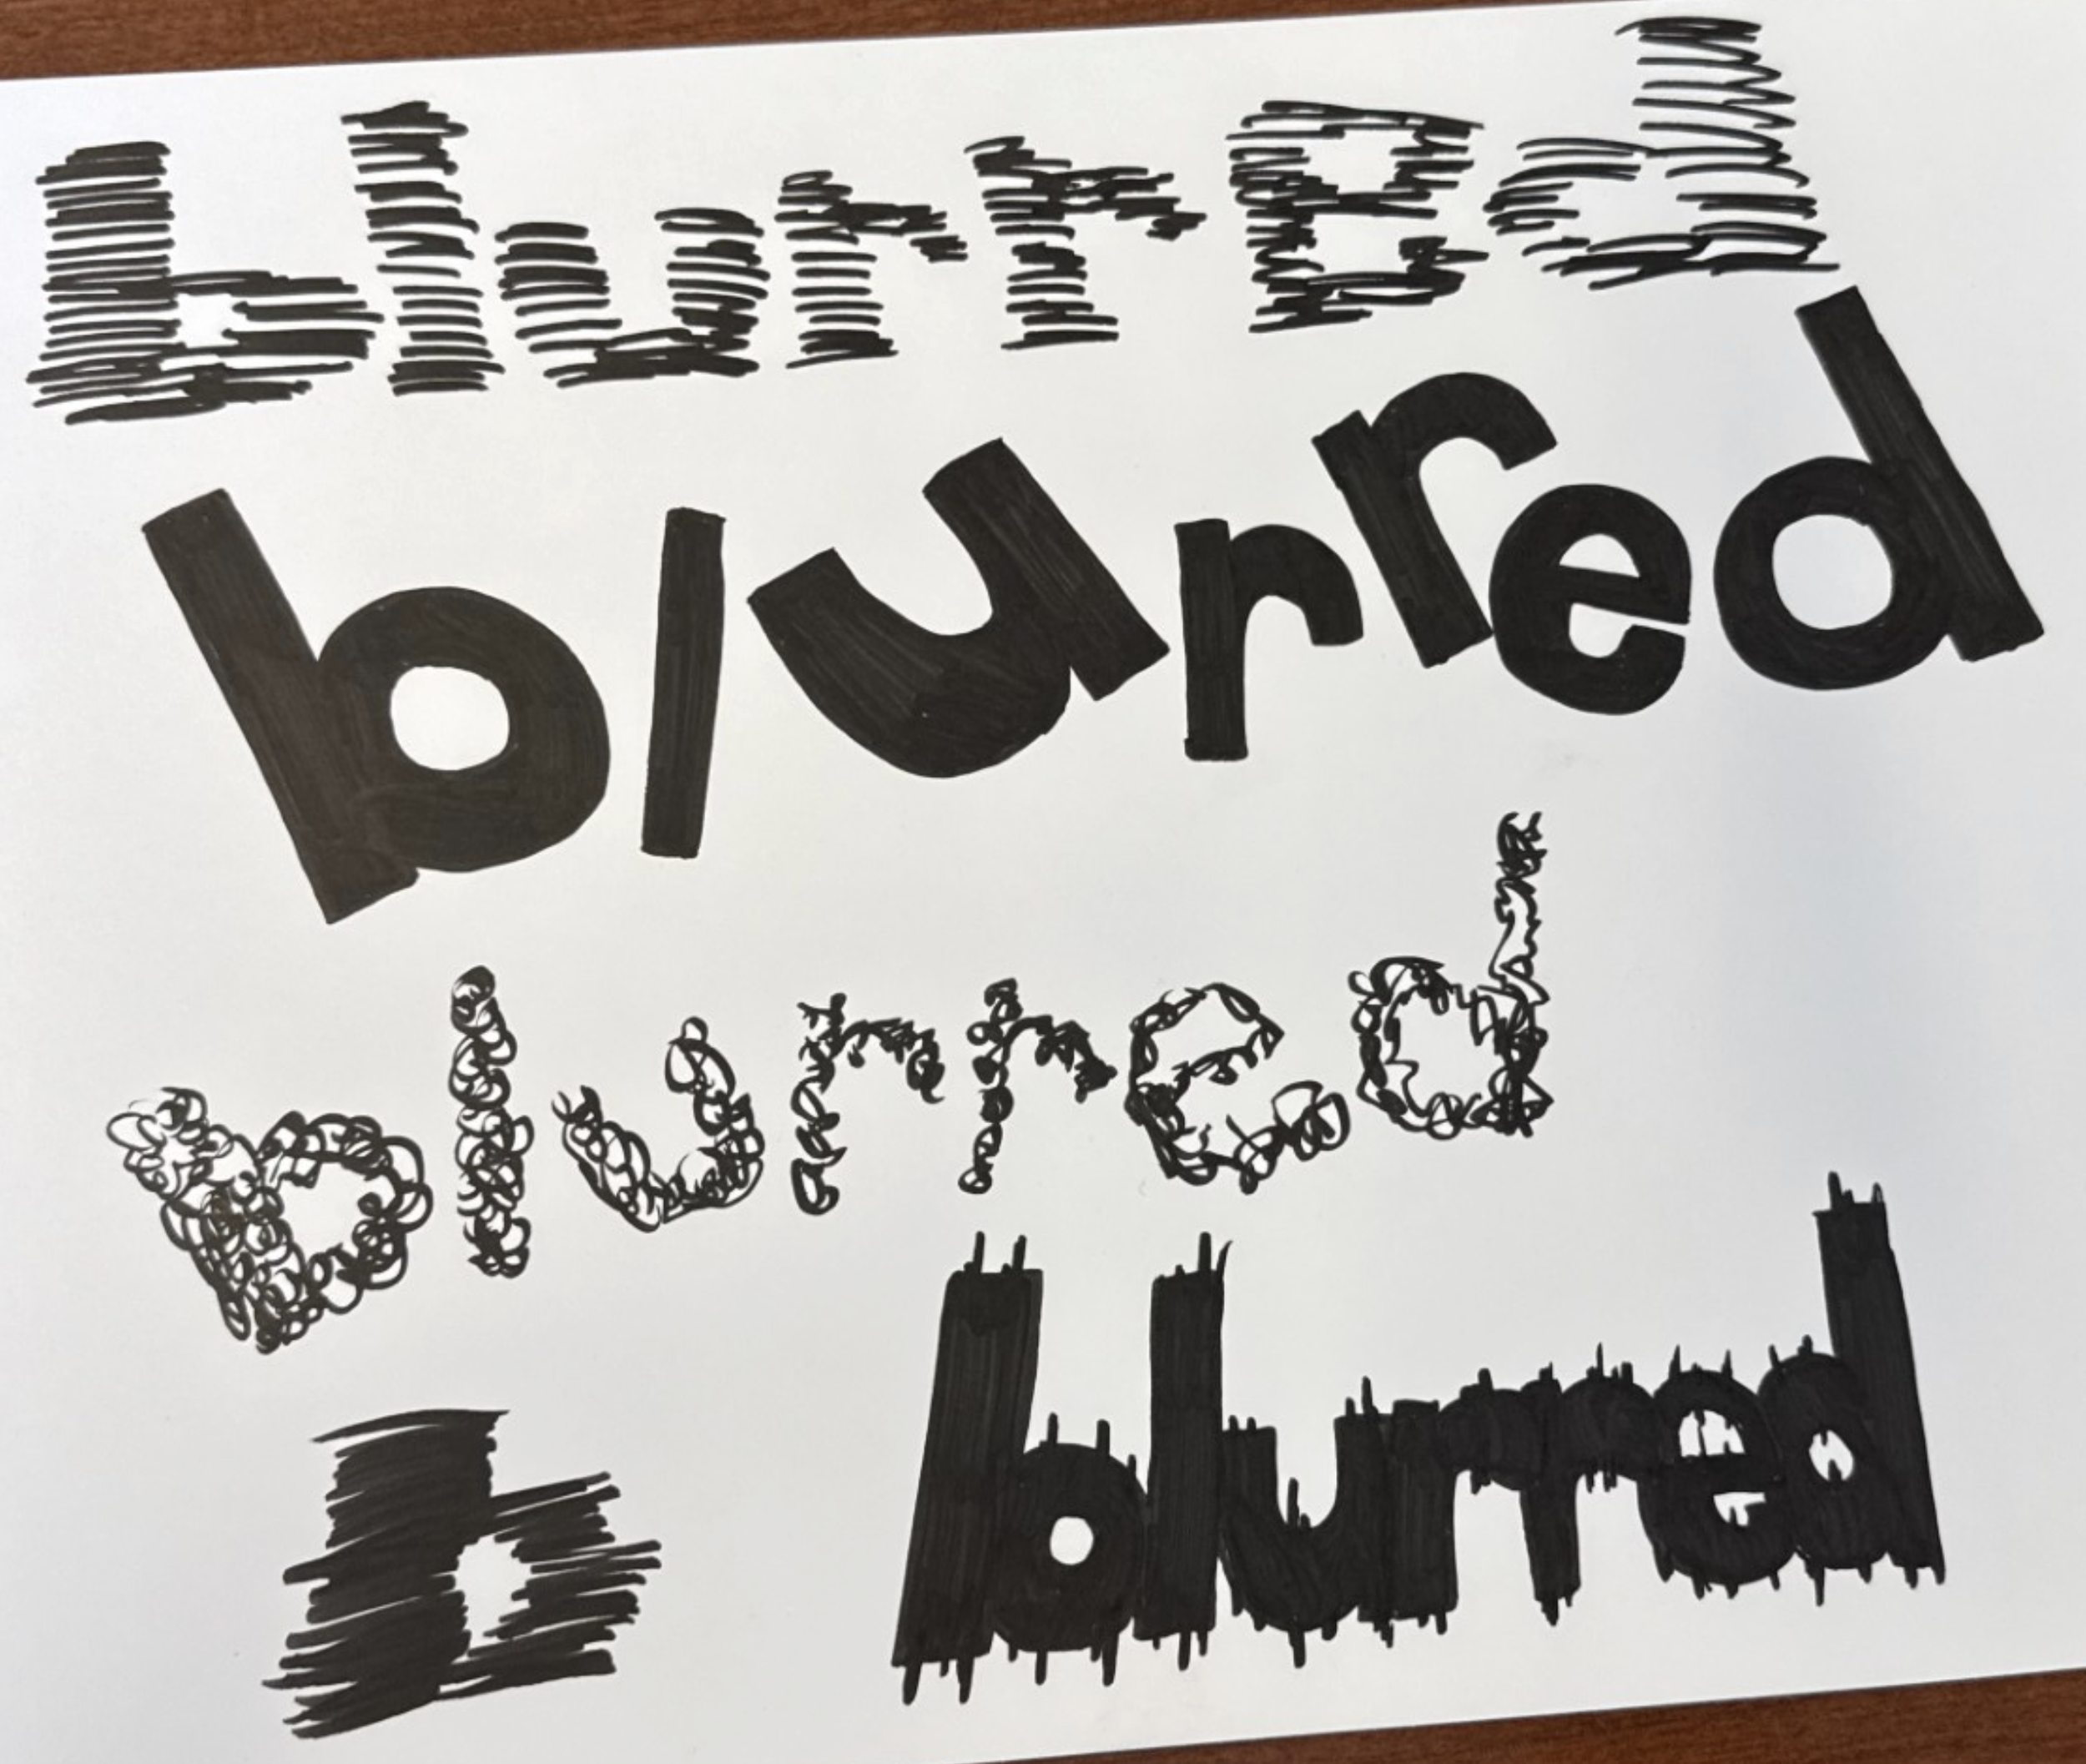 blurred
blurred
blurred
b blurred